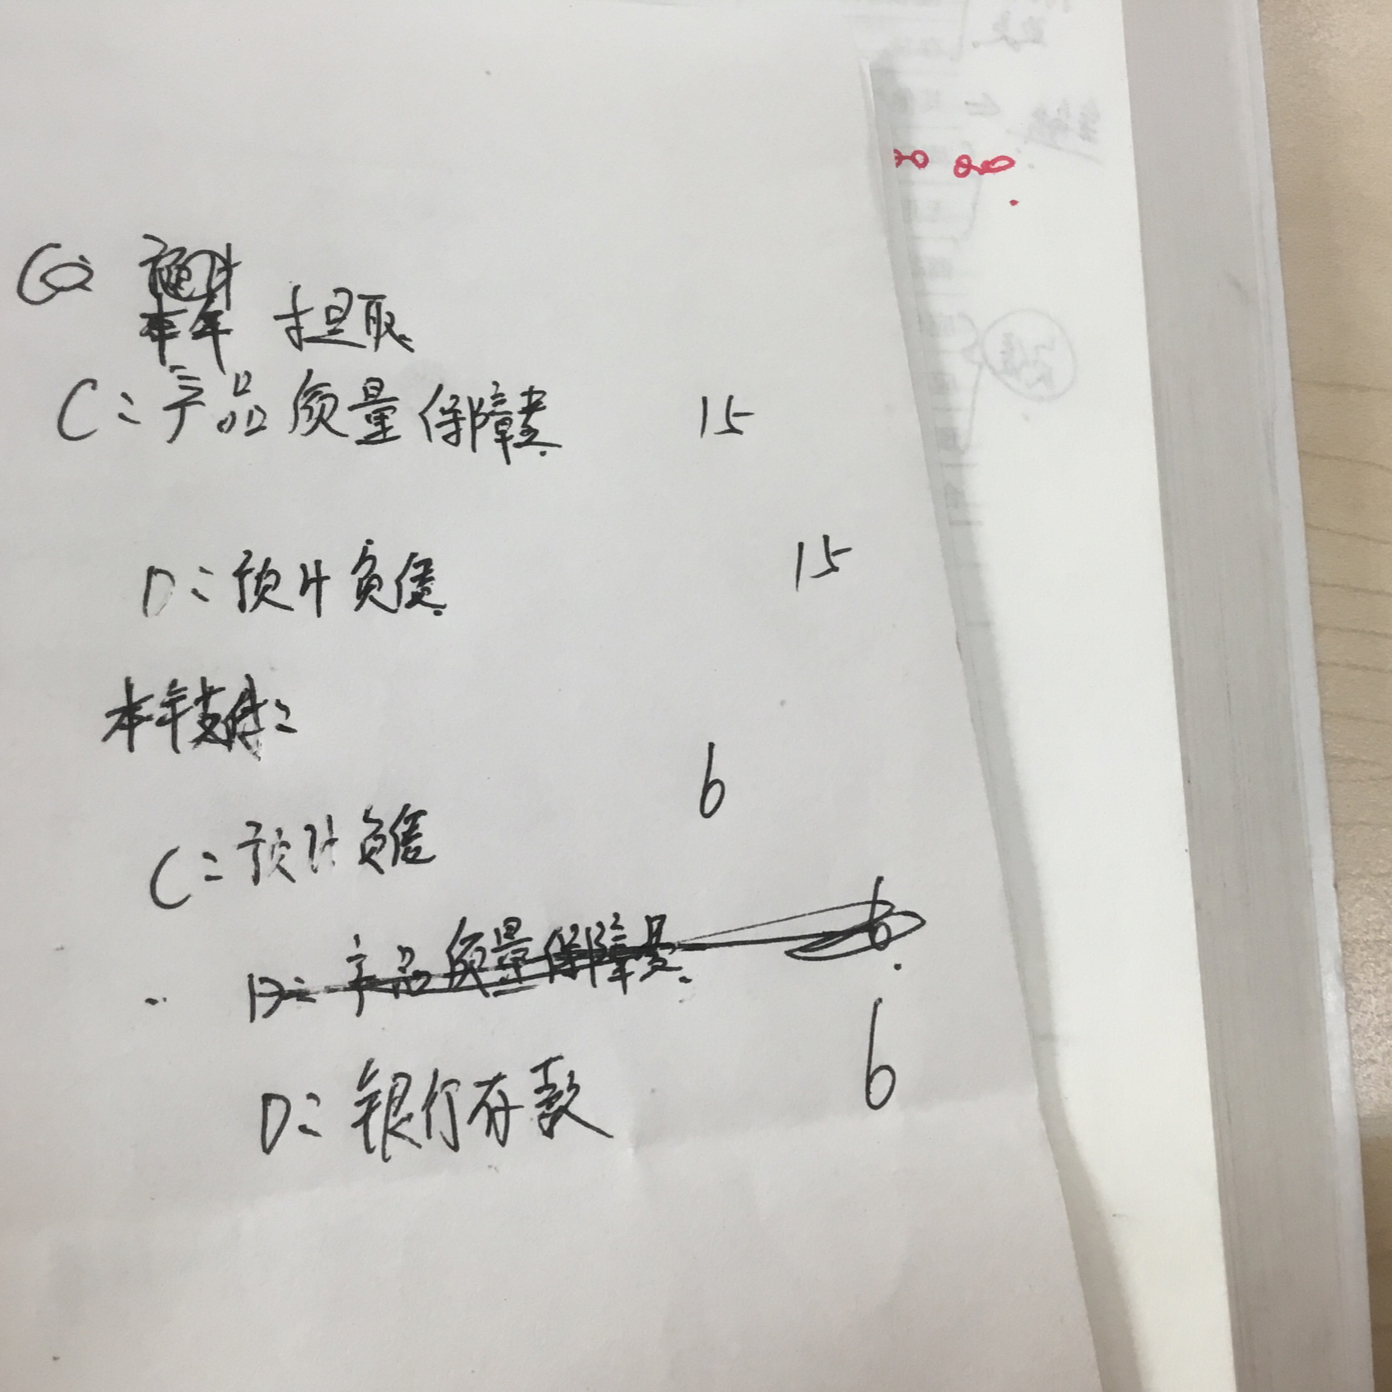 本年 提取
C：产品质量保障费 15
D：预计负债 15
本年支付：
C：预计负债 6
D：产品质量保障费 6
D：银行存款 6